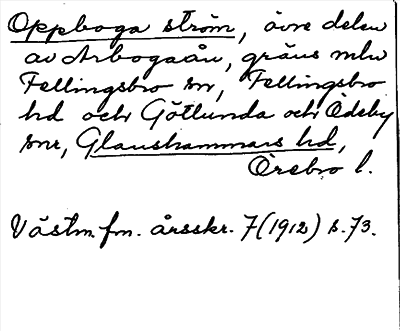 Oppboga ström, övre delen
av Arbogaån, gräns mln
Fellingsbro sn, Fellingsbro
hd och Götlunda och Ödeby
snr, Glanshammars hd,
Örebro l.
Västm. fm. årsskr. 7 (1912) s. 73.